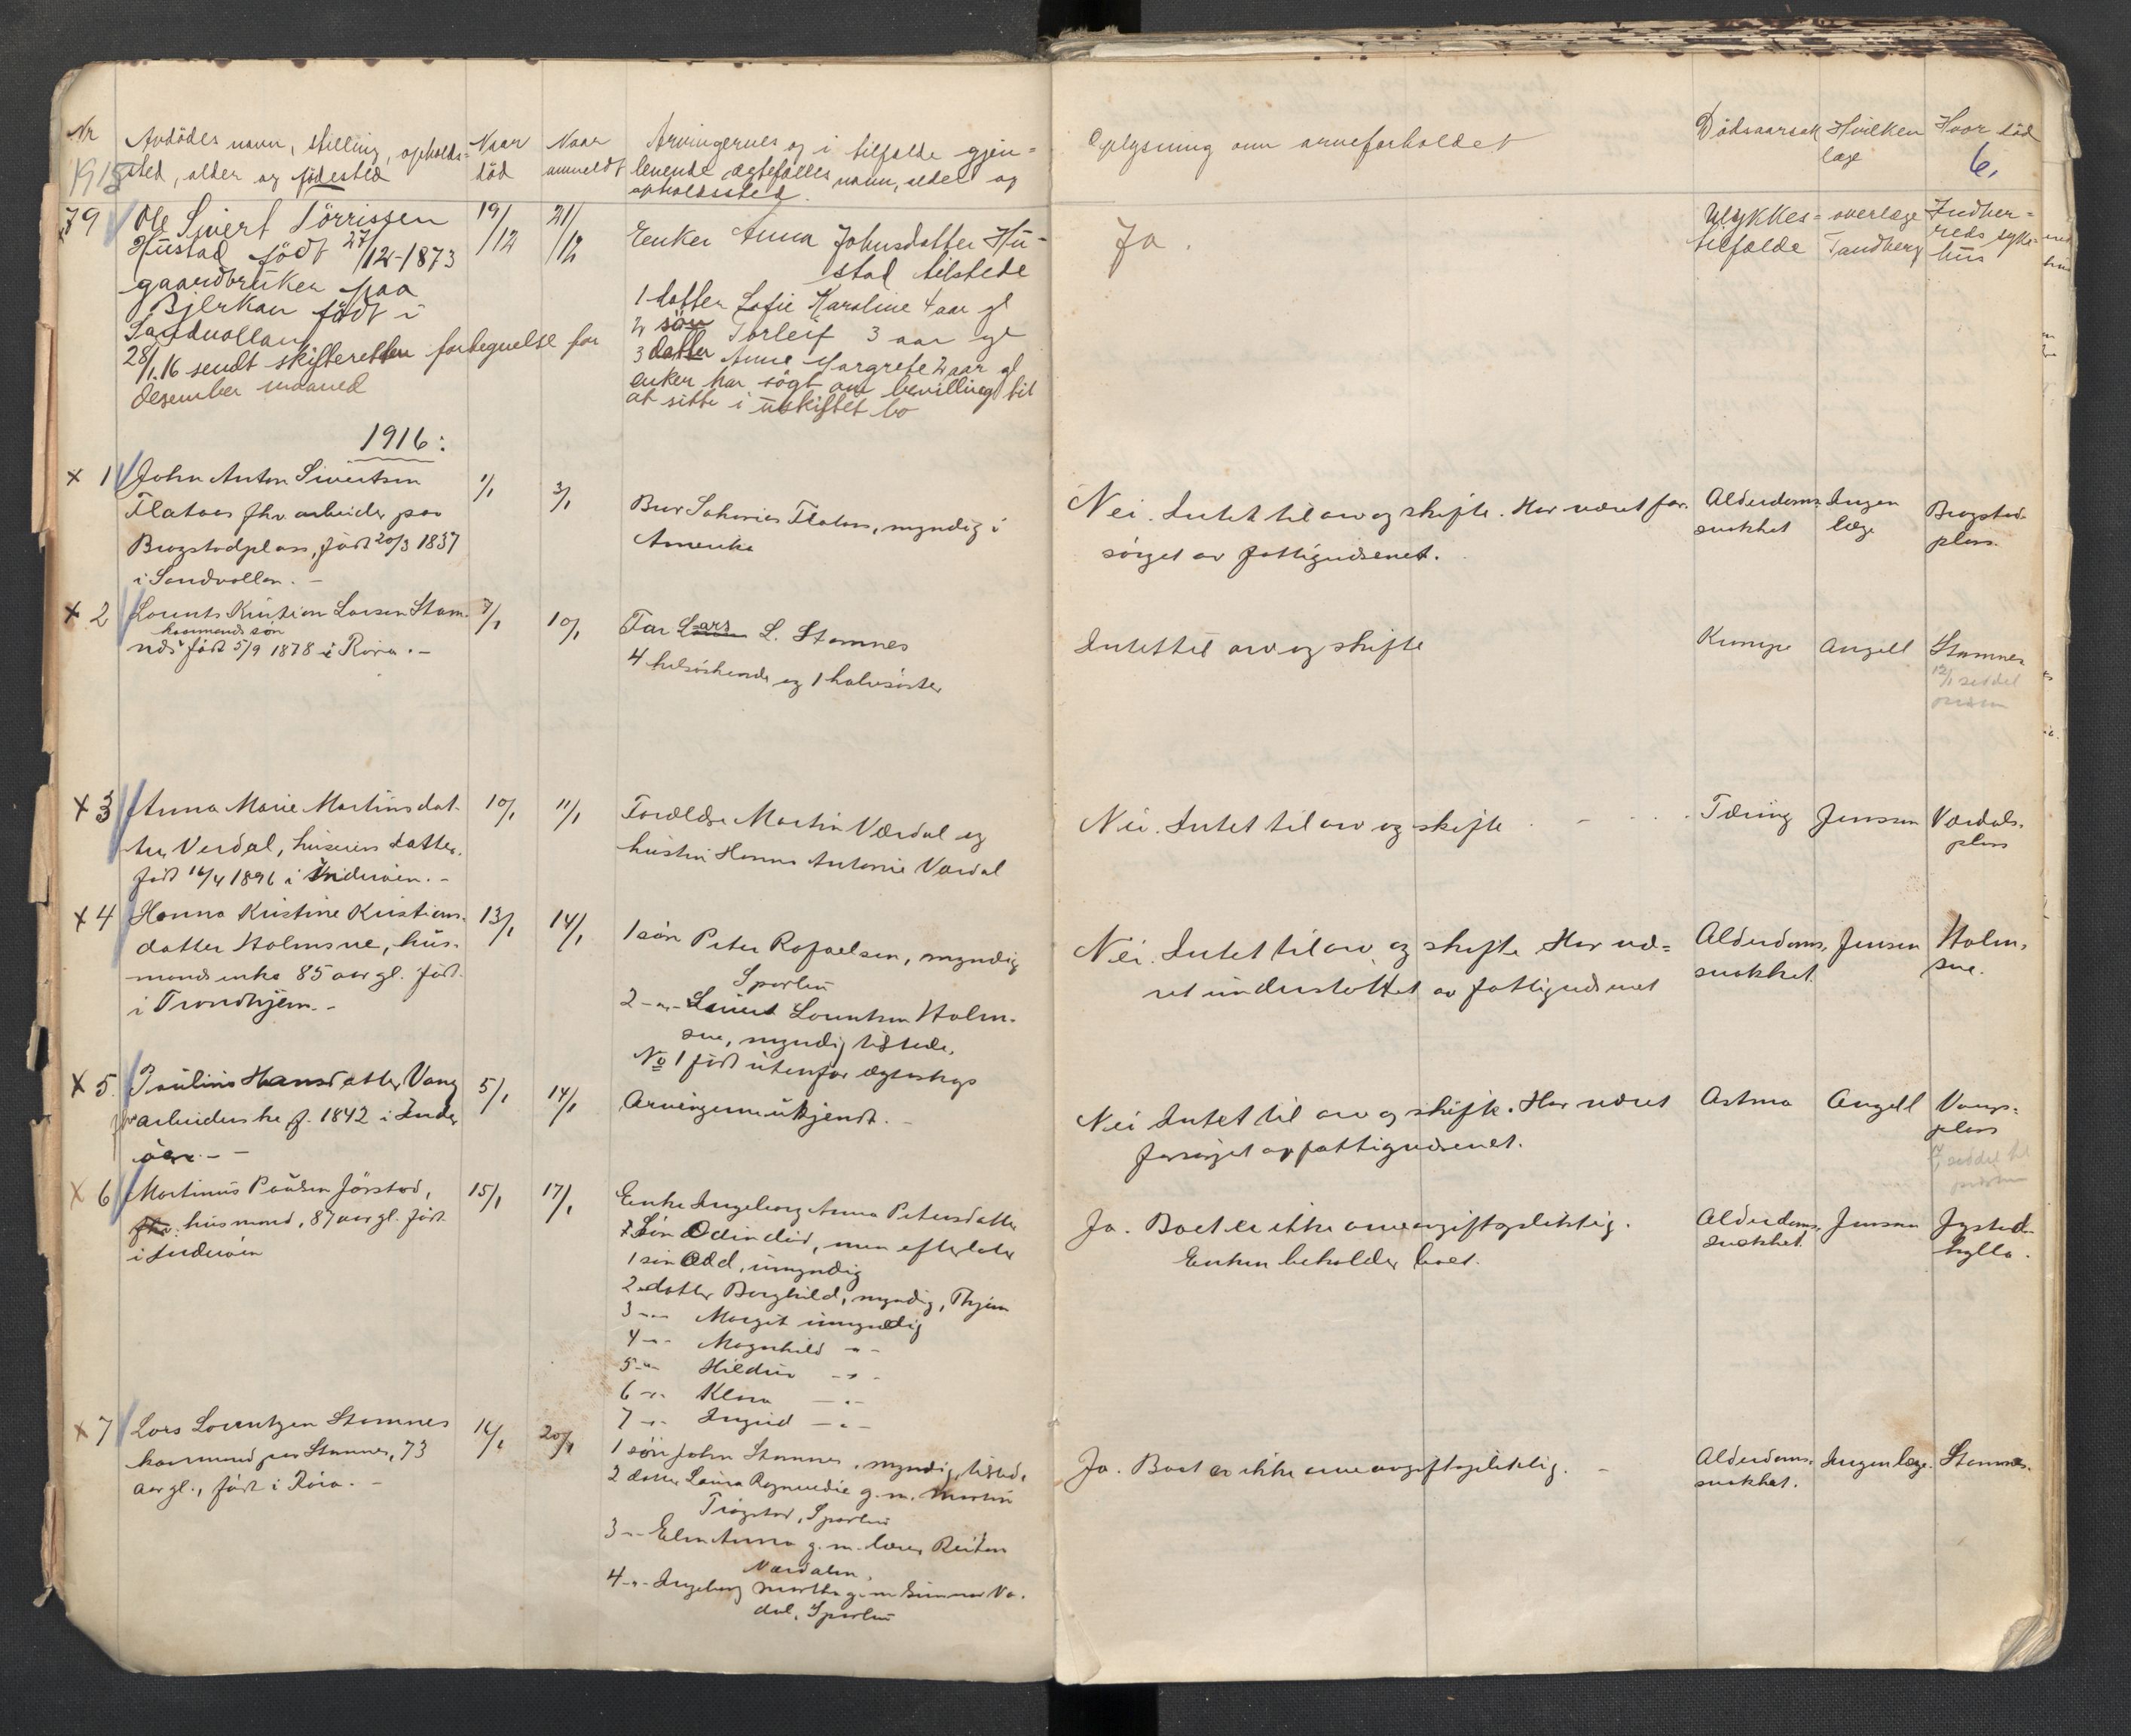 Nr
1915
Avdödes navn, stilling, opholds=
sted, alder og födested
Naar
död
Naar
anmeldt
Arvingernes og i tilfælde gjen=
levende ægtefælles navn, alder og
opholdssted.
Oplysning om arveforholdet
Dödsaarsak
Hvilken
læge
Hvor död
6.
79
Ole Sivert Törrissen
Hustad födt 27/12-1873
gaardbruker paa
Bjerkan födt i
Sandvollan
28/1.16 sendt skifteretten fortegnelse for
desember maaned
19/12
21/12
Enken Anna Johnsdatter Hu-
stad tilstede
1 datter Sofie Karoline 4 aar gl
2 sön Torleif 3 aar gl
3 datter Anne Margrete 2 aar gl
enken har sögt om bevilling til
at sitte i uskiftet bo
Ja.
Ulykkes=
tilfælde
overlæge
Sandberg
Indher=
reds syke=
hus
1916:
x 1
John Anton Sivertsen
Flataas fhv. arbeider paa
Brogstadplass, födt 20/3 1837
i Sandvollan. -
1/1
3/1
Bror Sakarias Flataas, myndig i
Amerika
Nei. Intet til arv og skifte. Har været for-
sörget av fattigvæsenet.
Alderdoms-
svakhet
Ingen
læge
Brogstad-
plass.
x 2
Lorents Kristian Larsen Stam-
kaarmands sön
nes födt 5/9 1878 i Röra. -
7/1
10/1
Far Lars L. Stamnes
4 helsöskende og 1 halvsöster
Intet til arv og skifte
Krampe
Angell
Stamnes
12/1 seddel
x 3
Anna Marie Martinsdat-
ter Verdal, husmands datter,
födt 16/4 1896 i Inderöen. -
10/1
11/1
Forældre Martin Værdal og
hustru Hanna Antonie Værdal
Nei. Intet til arv og skifte
Tæring
Jenssen
Værdals-
plass
x 4
Hanna Kristine Kristians-
datter Holmsve, hus-
mands enke 85 aar gl. födt
i Trondhjem. -
13/1
14/1
1 sön Peter Rafaelsen, myndig
Sparbu
2 -"- Sivert Lorentsen Holm-
sve, myndig tilstede.
No 1 födt utenfor ægteskap
Nei. Intet til arv og skifte Har væ=
ret understöttet av fattigvæsenet
Alderdoms-
svakhet
Jenssen
Holm-
sve.
x 5
Pauline Hansdatter Vang
arbeiderske f. 1842 i Inder
öen. -
5/1
14/1
Arvingerne ukjendt. -
Nei Intet til arv og skifte. Har været
forsörget av fattigvæsenet.
Astma
Angell
Vangs=
plass
seddel til
x 6
Martinus Paulsen Jörstad,
fhv. husmand, 87 aar gl. födt
i Inderöen
15/1
17/1
Enke Ingeborg Anna Petersdatter
1 Sön Odin död, men efterlater
1 sön Odd, umyndig
2 datter Borghild, myndig, Thjem
3 -"- Margit umyndig
4 -"- Magnhild -"-
5 -"- Hildur -"-
6 -"- Klara -"-
7 -"- Ingrid -"-
Ja. Boet er ikke arveavgiftspliktig.
Enken beholder boet.
Alderdoms-
svakhet.
Jenssen
Jystad-
hylla.
x 7
Lars Lorentzen Stamnes
kaarmand paa Stamnes, 73
aar gl., födt i Röra. -
16/1
20/1
1 sön John Stamnes, myndig, tilstede
2 datter Laura Ragnvedie g.m. Martin
Trögstad, Sparbu
3 -"- Elen Anna g.m. lærer Reitan
Værdalen.
4 -"- Ingeborg Martha g.m. Gunnar Va-
dal, Sparbu
Ja. Boet er ikke arveavgiftspliktig. -
Alderdoms-
svakhet.
Ingen læge.
Stamnes.